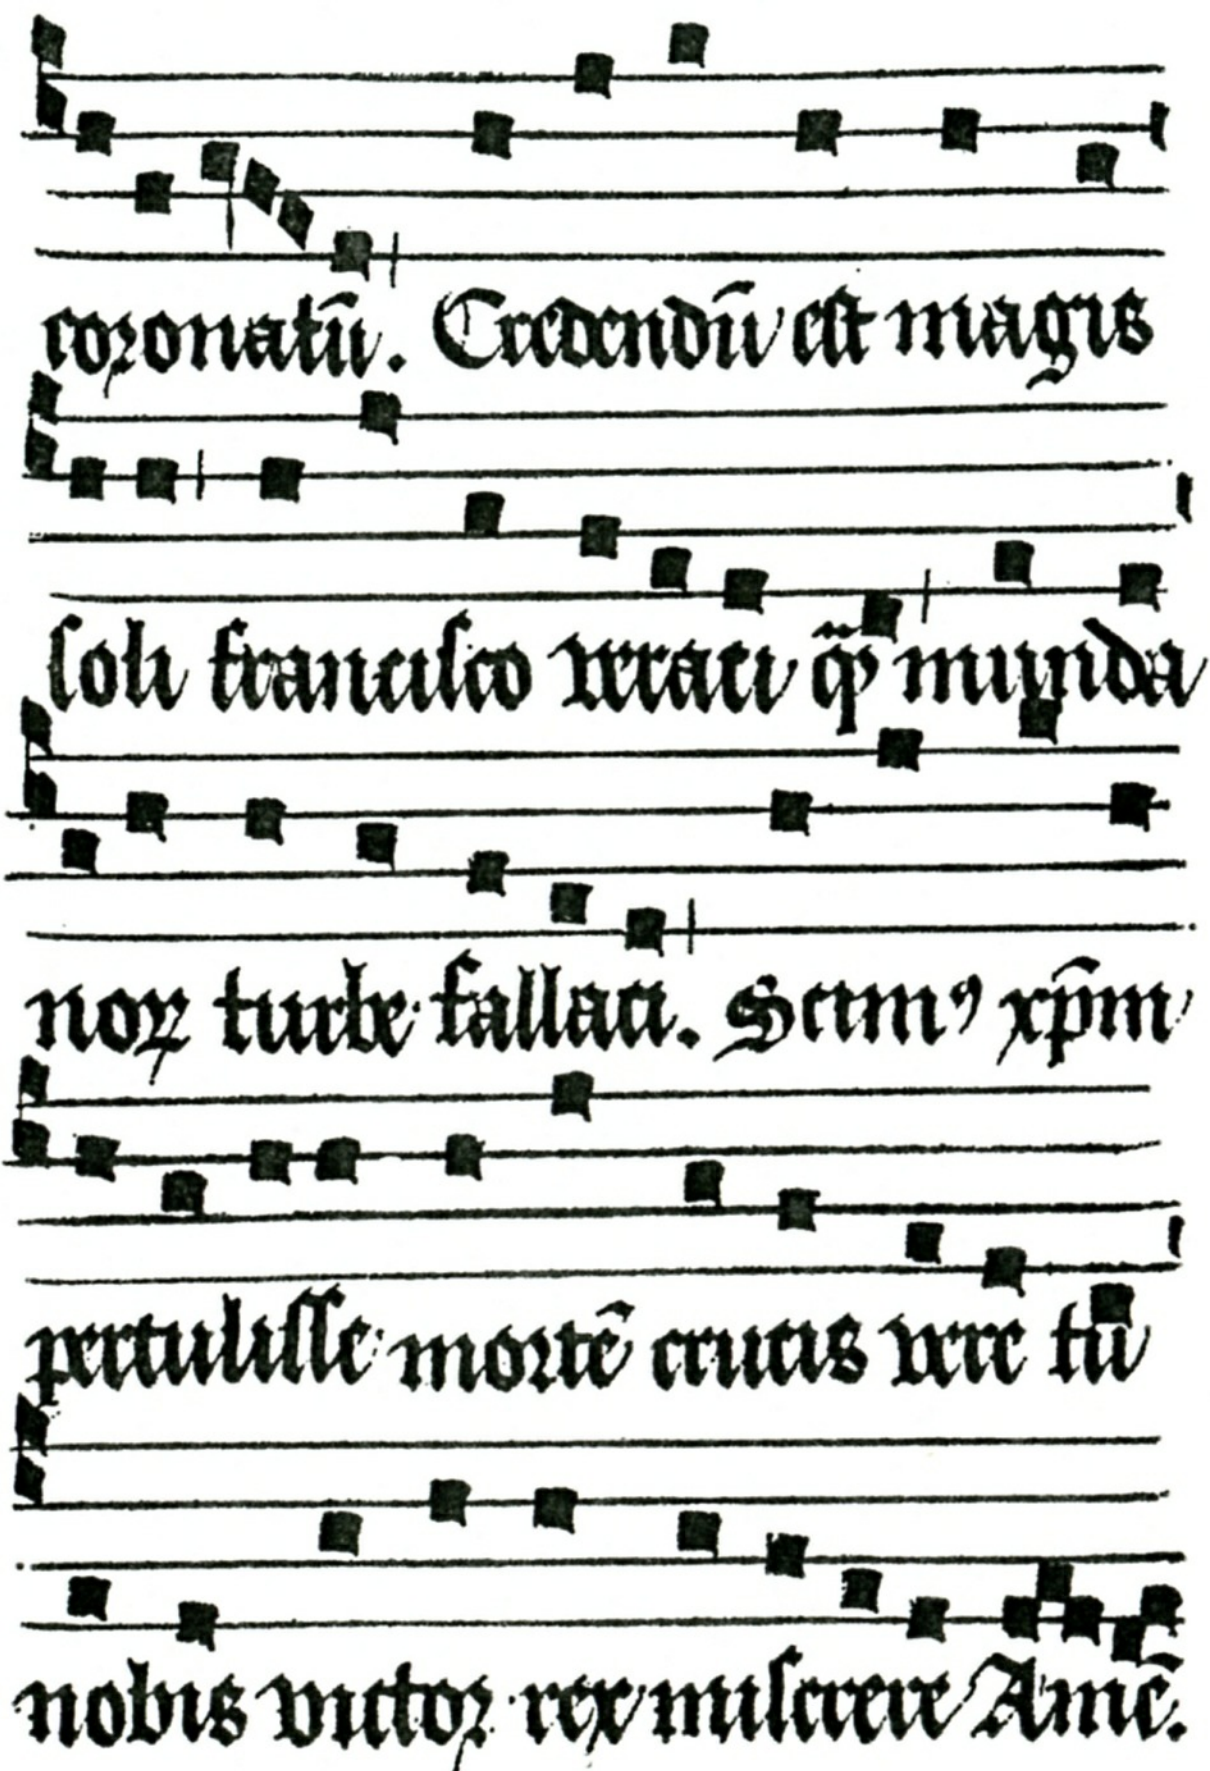 coronatū. Credendū est magis
soli francisco veraci qͣ̈ꝫ munda
noꝝ turbe fallaci. Scimꝰ xp̄m
pertulisse mortē crucis vere tū
nobis victor rex miserere Amē.